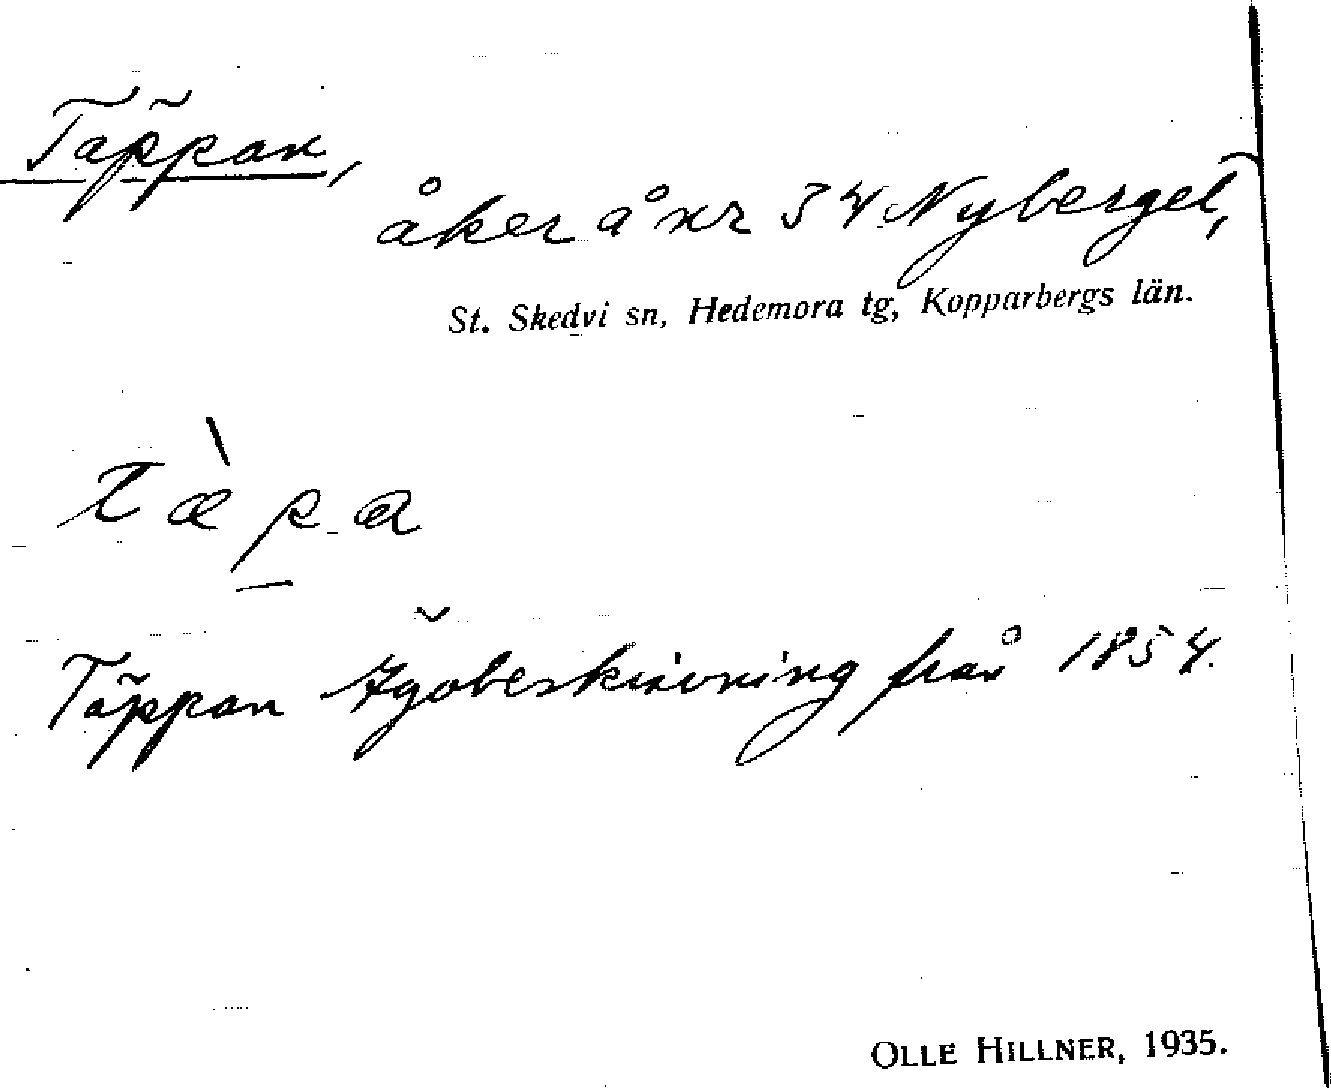 Täppan,
åker å nr 34 Nyberget,
St. Skedvi sn, Hedemora tg, Kopparbergs län.
tæ̀pa
Täppan Ägobeskrivning från 1854.
OLLE HILLNER, 1935.